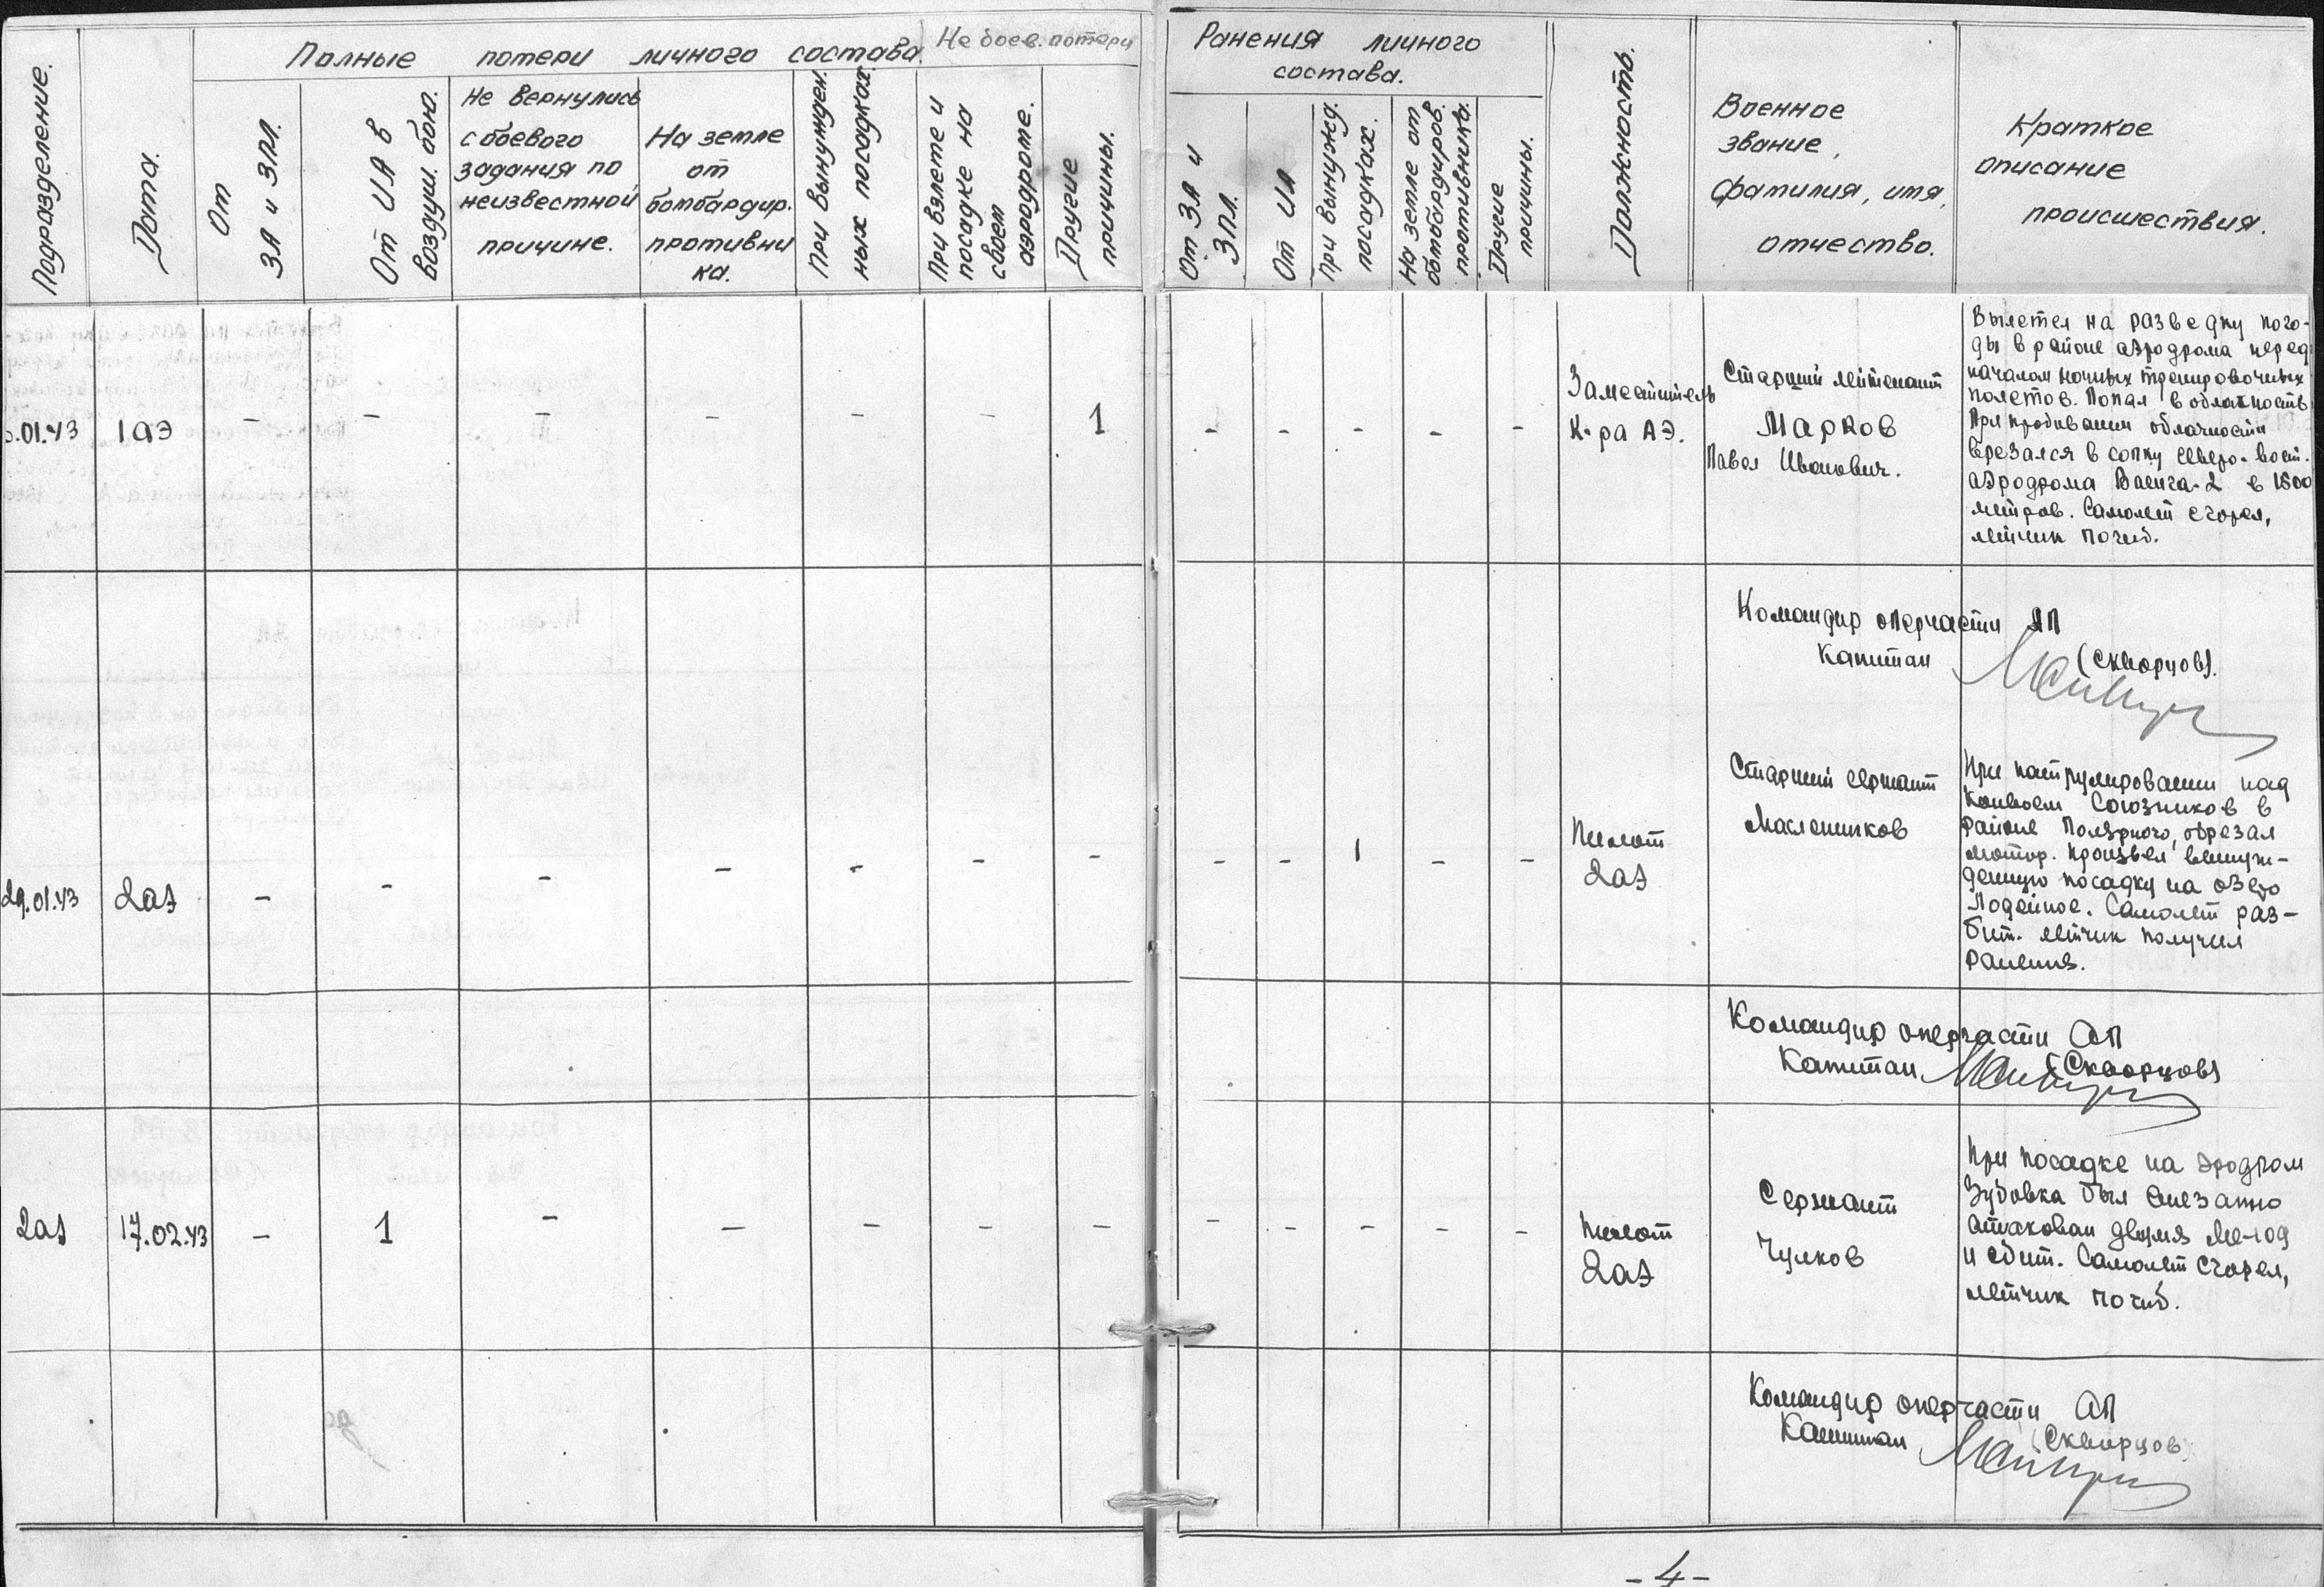 Подразделение.
Дата.
Полные потери личного состава.
Не боев. потери
От
ЗА и ЗПЛ.
От ИА в
воздуш. бою.
Не вернулись
с боевого
задания по
неизвестной
причине.
На земле
от
бомбардир.
противни
ка.
При вынужден
ных посадках.
При взлете и
посадке на
своем
аэродроме.
Другие
причины.
Ранения личного
состава.
От ЗА и
ЗПЛ.
От ИА
При вынужд.
посадках.
На земле от
бомбардиров.
противника.
Другие
причины.
Должность.
Военное
звание,
фамилия, имя,
отчество.
Краткое
описание
происшествия.
.01.43 1аэ - - - - - - 1 - - - - -
Заместитель
К-ра АЭ.
Старший лейтенант
Марков
Павел Иванович.
Вылетел на разведку пого-
ды в районе аэродрома перед
началом ночных тренировочных
полетов. Попал в облачность
При пробивании облачности
врезался в сопку северо-вост.
аэродрома Ваенга-2 в 1800
метров. Самолет сгорел,
летчик погиб.
Командир оперчасти АП
Капитан (Скворцов).
29.01.43 2аэ - - - - - - - - - 1 - -
Пилот
2аэ
Старший сержант
Масленников
При патрулировании над
Конвоем Союзников в
районе Полярного, обрезал
мотор. Произвел вынуж-
денную посадку на озеро
Лодейное. Самолет раз-
бит. летчик получил
ранения.
Командир оперчасти АП
Капитан (Скворцов)
2аэ 17.02.43 - 1 - - - - - - - - - -
Пилот
2аэ
Сержант
Чулков
При посадке на эродром
Зубовка был внезапно
атакован двумя Ме-109
и сбит. Самолет сгорел,
летчик погиб.
Командир оперчасти АП
Капитан (Скворцов)
-4-